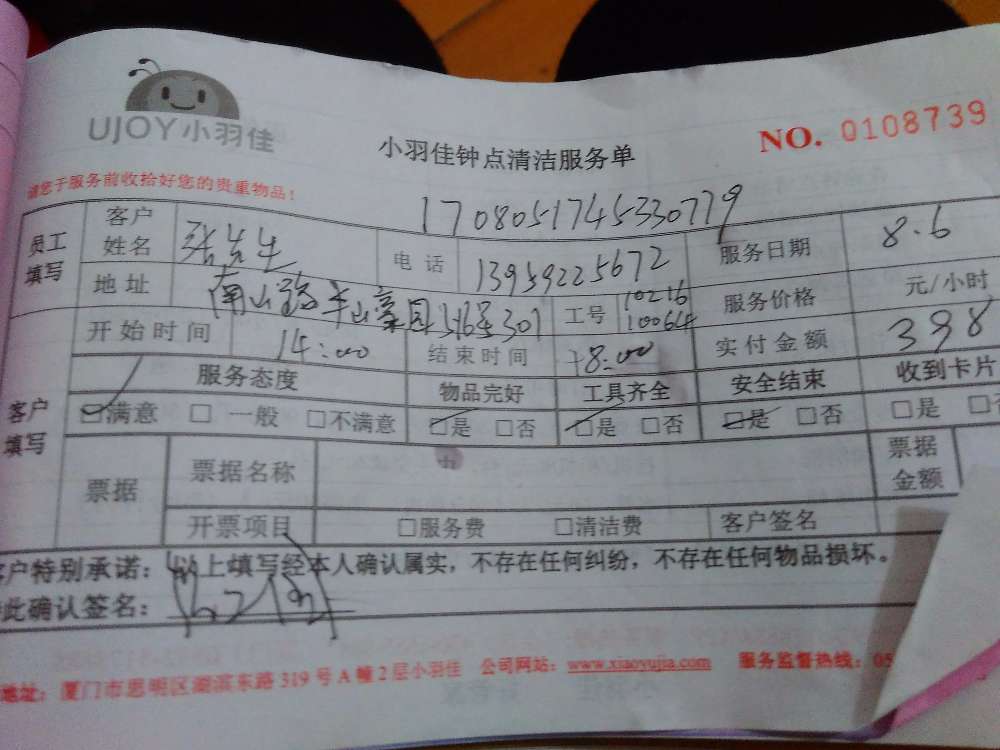 UJOY小羽佳
小羽佳钟点清洁服务单
NO. 0108739
请您于服务前收拾好您的贵重物品！
1708051745330779
员工填写
客户姓名 张先生 电话 13959225672 服务日期 8.6
地址 南山路半山豪园 301 工号 10216 10064 服务价格 元/小时
开始时间 14:00 结束时间 18:00 实付金额 398
客户填写
服务态度 物品完好 工具齐全 安全结束 收到卡片
☑满意 □一般 □不满意 ☑是 □否 ☑是 □否 ☑是 □否 □是 □否
票据 票据名称 票据金额
开票项目 □服务费 □清洁费 客户签名
客户特别承诺：以上填写经本人确认属实，不存在任何纠纷，不存在任何物品损坏。
此确认签名：
地址：厦门市思明区湖滨东路319号A幢2层小羽佳 公司网站：www.xiaoyujia.com 服务监督热线：05